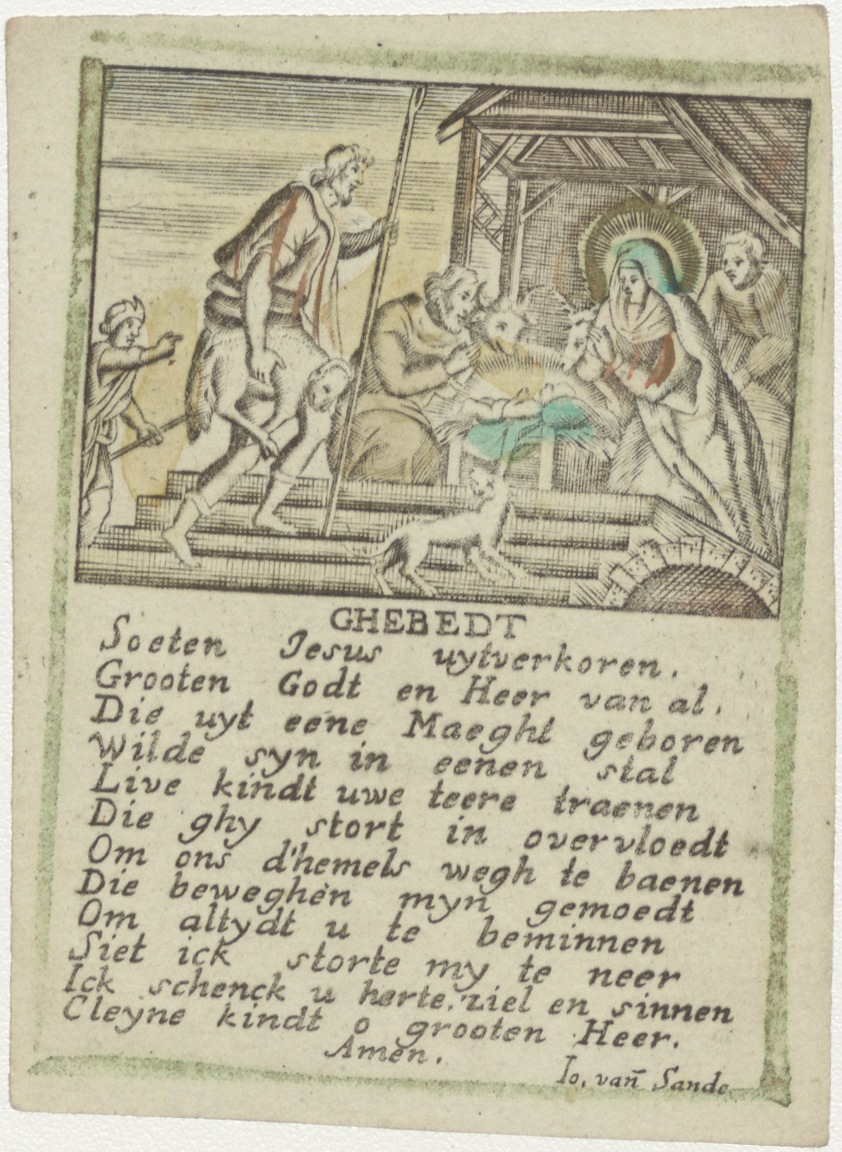 GHEBEDT
Soeten Jesus uytverkoren.
Grooten Godt en Heer van al.
Die uyt eene Maeght geboren
Wilde syn in eenen stal
Live kindt uwe teere traenen
Die ghy stort in overvloedt
Om ons d'hemels wegh te baenen
Die beweghen myn gemoedt
Om altydt u te beminnen
Siet ick storte my te neer
Ick schenck u herte, ziel en sinnen
Cleyne kindt o grooten Heer.
Amen.
Io. van̄ Sande